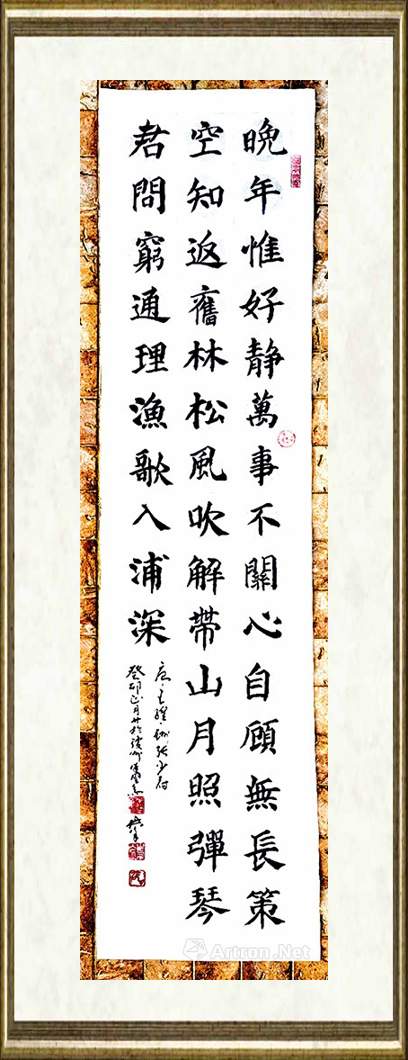 晚年惟好静萬事不關心自顧無長策
空知返舊林松風吹解帶山月照彈琴
君問窮通理漁歌入浦深
唐王維酬張少府
癸卯正月
Artron.Net